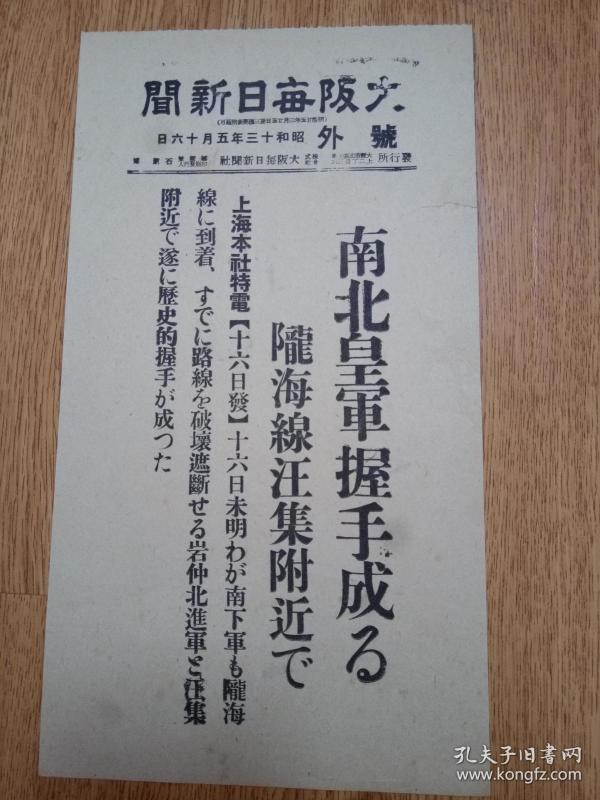 大阪毎日新聞
號外 昭和十三年五月十六日
發行所 株式會社 大阪毎日新聞社
南北皇軍握手成る
隴海線汪集附近で
上海本社特電【十六日發】十六日未明わが南下軍も隴海
線に到着、すでに路線を破壞遮斷せる岩仲北進軍と汪集
附近で遂に歷史的握手が成つた
孔夫子旧書网
www.kongfz.com